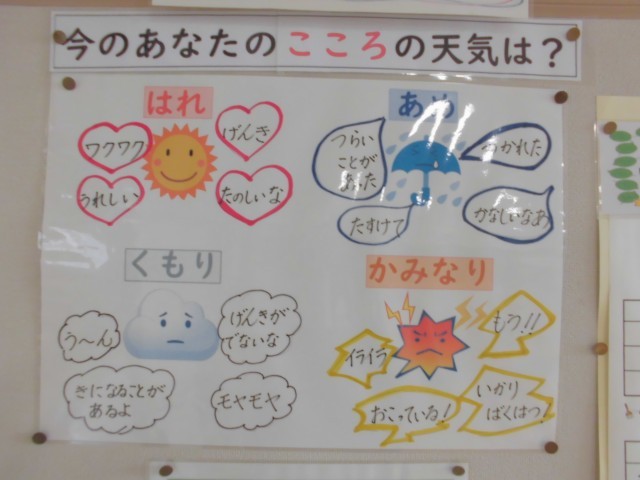 今のあなたのこころの天気は？
はれ
ワクワク
げんき
うれしい
たのしいな
あめ
つらい
ことが
あった
つかれた
たすけて
かなしいなあ
くもり
う〜ん
げんきが
でないな
きになることが
あるよ
モヤモヤ
かみなり
イライラ
もう!!
おこっている!
いかり
ばくはつ!